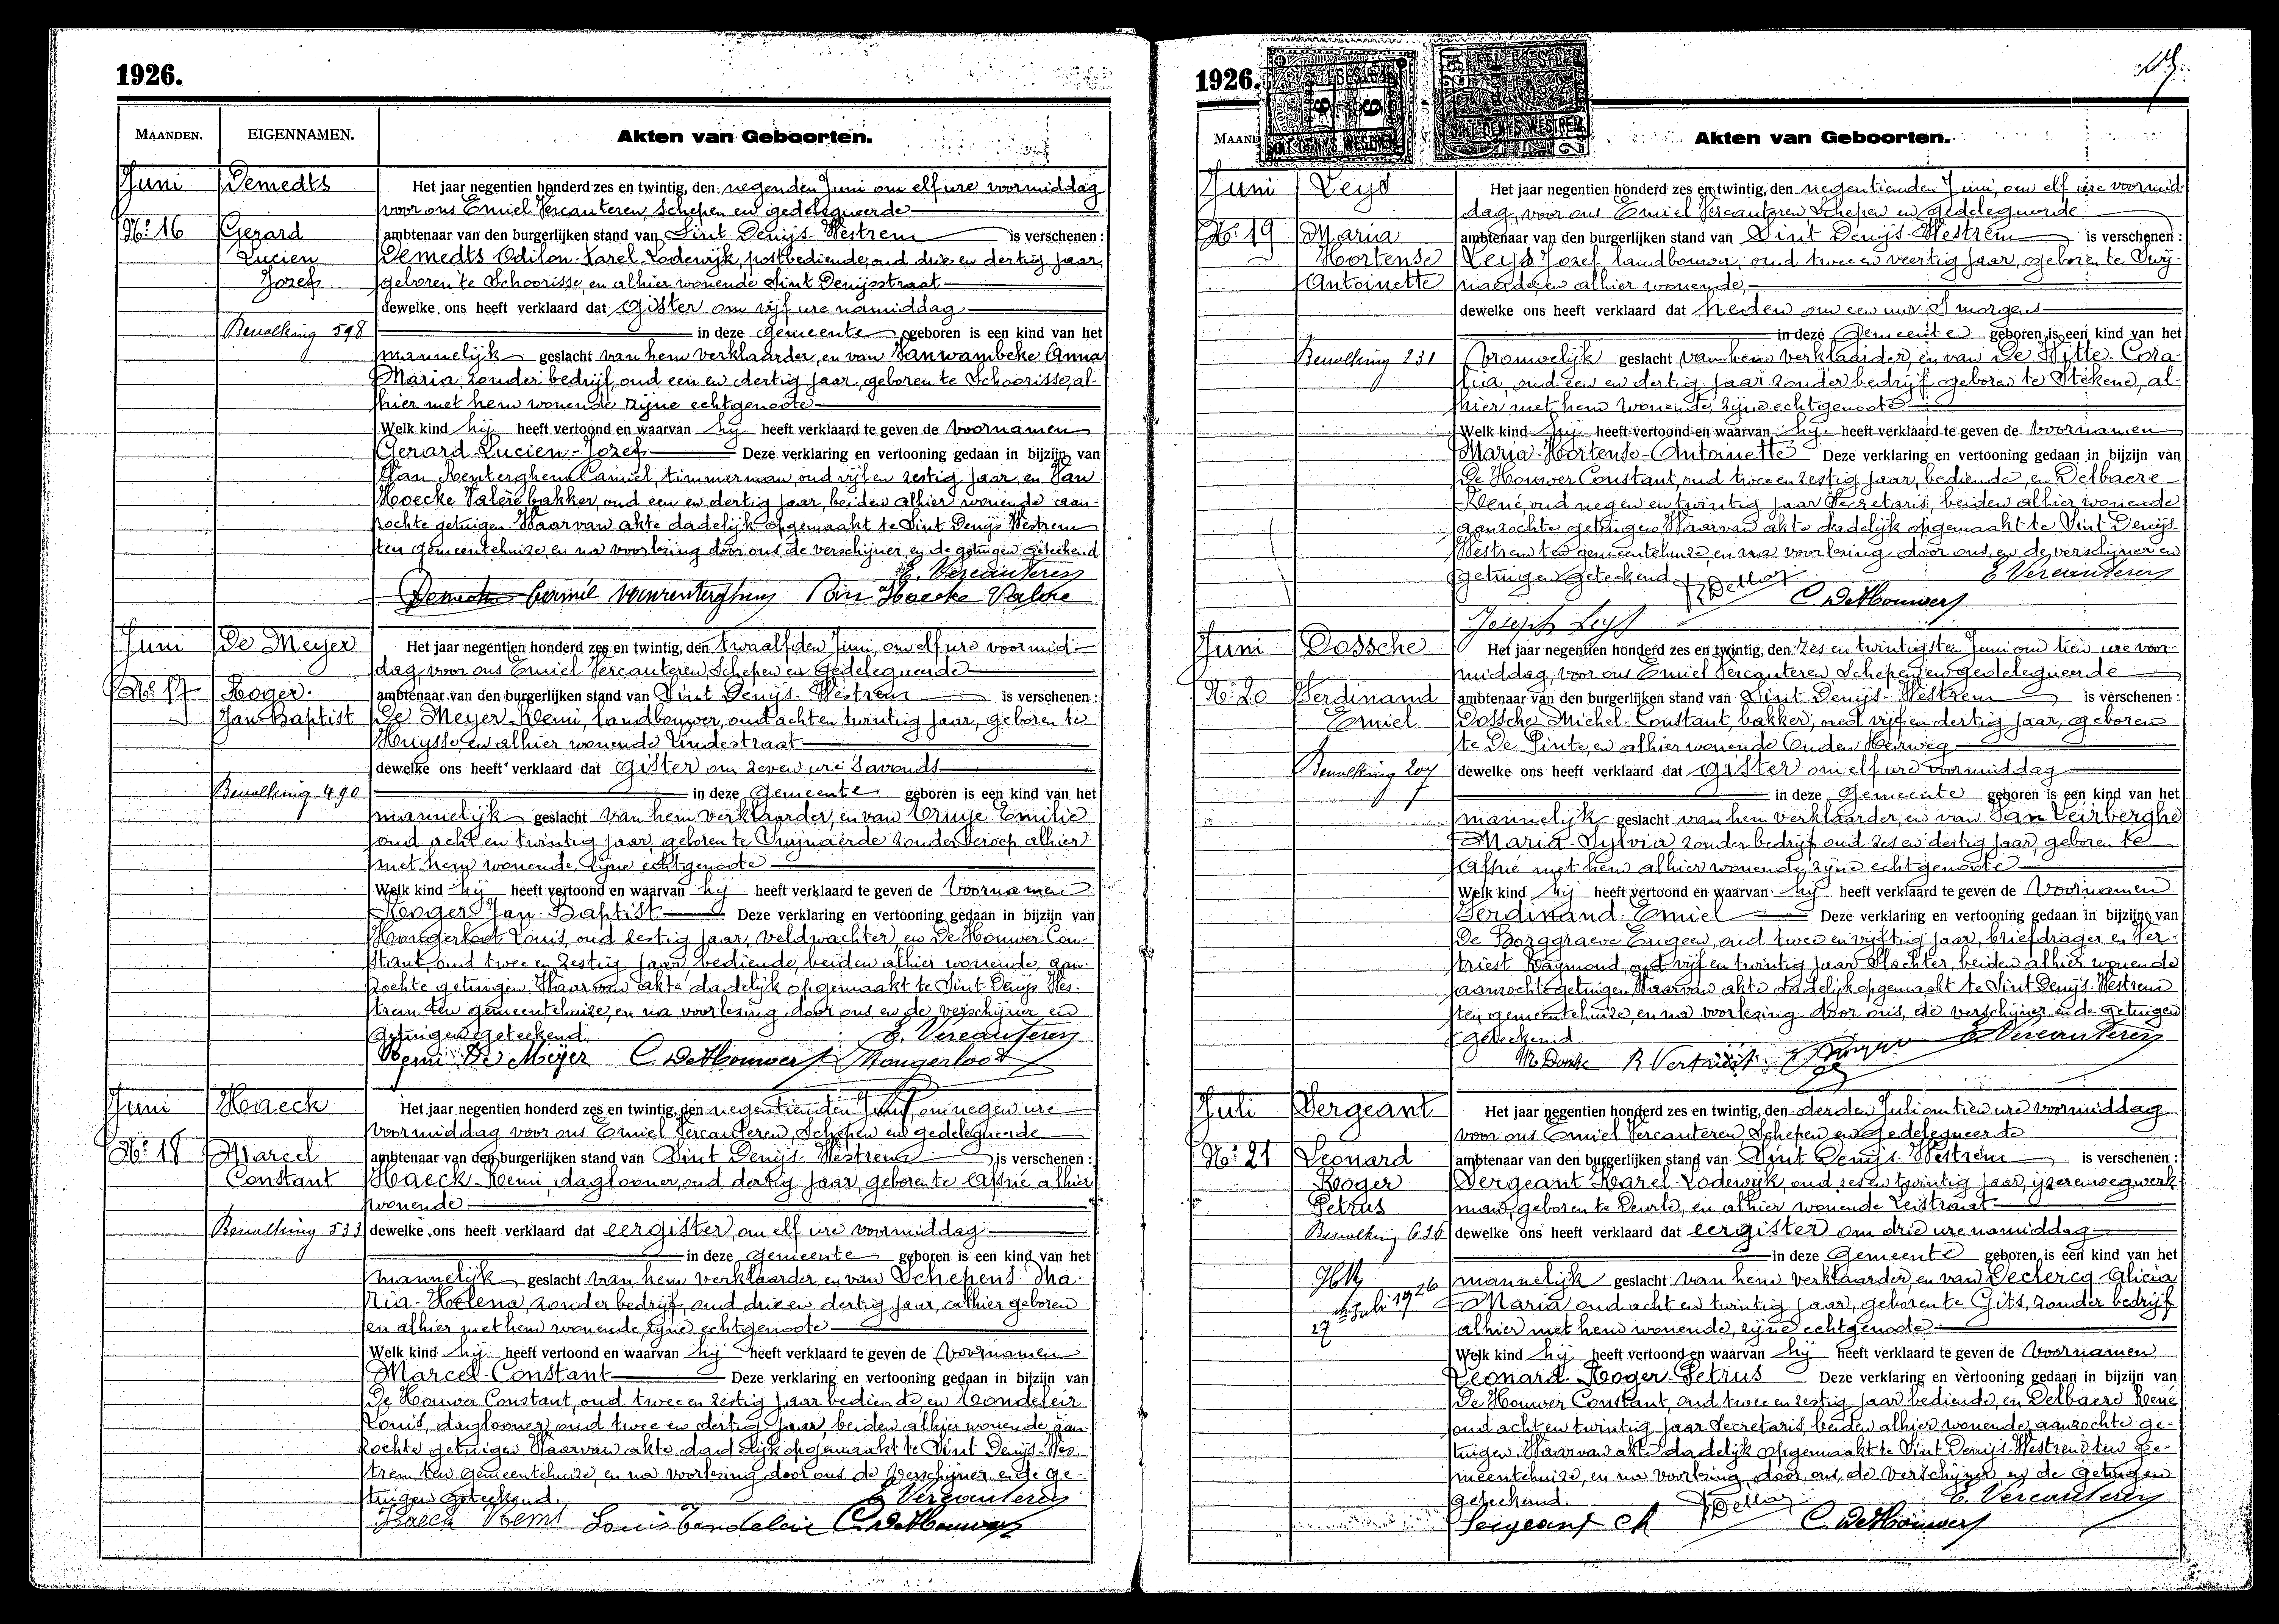 1926.
MAANDEN. EIGENNAMEN. Akten van Geboorten.
Juni Demedts Het jaar negentien honderd zes en twintig, den negenden Juni om elf ure voormiddag
voor ons Emiel Vercauteren, Schepen en gedelegueerde
No. 16 Gerard ambtenaar van den burgerlijken stand van Sint Denijs-Westrem is verschenen :
Lucien Demedts Odilon-Karel-Lodewijk, postbediende, oud drie en dertig jaar,
Jozef geboren te Schoorisse, en alhier wonende Sint Denijsstraat
dewelke ons heeft verklaard dat Gister om vijf ure namiddag
Bevolking 598 in deze Gemeente geboren is een kind van het
mannelijk geslacht van hem verklaarder, en van Vanwambeke Anna
Maria, zonder bedrijf, oud een en dertig jaar, geboren te Schoorisse, al-
hier met hem wonende zijne echtgenoote
Welk kind hij heeft vertoond en waarvan hij heeft verklaard te geven de voornamen
Gerard-Lucien-Jozef Deze verklaring en vertooning gedaan in bijzijn van
Van Renterghem Camiel, timmerman, oud vijf en zestig jaar, en Van
Hoecke Valère bakker, oud een en dertig jaar, beiden alhier wonende aan-
zochte getuigen. Waarvan akte dadelijk opgemaakt te Sint Denijs Westrem
ten gemeentehuize, en na voorlezing door ons, de verschijner en de getuigen geteekend
E. Vercauteren
Demedts Camiel Vanrenterghem Van Hoecke Valère
Juni De Meyer Het jaar negentien honderd zes en twintig, den twaalfden Juni, om elf ure voormid-
dag, voor ons Emiel Vercauteren, Schepen en Gedelegueerde
No. 17 Roger ambtenaar van den burgerlijken stand van Sint Denijs-Westrem is verschenen :
Jan-Baptist De Meyer Remi, landbouwer, oud acht en twintig jaar, geboren te
Huysse, en alhier wonende Lindestraat
dewelke ons heeft verklaard dat Gister om zeven ure 's avonds
Bevolking 490 in deze Gemeente geboren is een kind van het
mannelijk geslacht van hem verklaarder, en van Cruye Emilie
oud acht en twintig jaar, geboren te Swijnaerde zonder beroep alhier
met hem wonende, zijne echtgenoote
Welk kind hij heeft vertoond en waarvan hij heeft verklaard te geven de Voornamen
Roger Jan-Baptist Deze verklaring en vertooning gedaan in bijzijn van
Hongerloot Louis, oud zestig jaar, veldwachter, en De Houwer Con-
stant, oud twee en zestig jaar, bediende, beiden alhier wonende, aan-
zochte getuigen. Waarvan akte dadelijk opgemaakt te Sint Denijs Wes-
trem ten gemeentehuize, en na voorlezing door ons, en de verschijner en
getuigen geteekend. E. Vercauteren
Remi De Meyer C. De Houwer L. Hongerloot
Juni Haeck Het jaar negentien honderd zes en twintig, den negentienden Juni om negen ure
voormiddag voor ons Emiel Vercauteren, Schepen en gedelegueerde
No. 18 Marcel ambtenaar van den burgerlijken stand van Sint Denijs-Westrem is verschenen :
Constant Haeck Remi, daglooner, oud dertig jaar, geboren te Afsné alhier
wonende
Bevolking 533 dewelke ons heeft verklaard dat eergister, om elf ure voormiddag
in deze Gemeente geboren is een kind van het
mannelijk geslacht van hem verklaarder, en van Schepens Ma-
ria-Helena, zonder bedrijf, oud drie en dertig jaar, alhier geboren
en alhier met hem wonende, zijne echtgenoote
Welk kind hij heeft vertoond en waarvan hij heeft verklaard te geven de Voornamen
Marcel-Constant Deze verklaring en vertooning gedaan in bijzijn van
De Houwer Constant, oud twee en zestig jaar bediende en Condeleir
Louis, daglooner, oud twee en dertig jaar, beiden alhier wonende, aan-
zochte getuigen. Waarvan akte dadelijk opgemaakt te Sint Denijs-Wes-
trem ten gemeentehuize, en na voorlezing door ons, de verschijner, en de ge-
tuigen geteekend. E. Vercauteren
Haeck Remi Louis C. De Houwer
1926.
Akten van Geboorten.
Juni Leys Het jaar negentien honderd zes en twintig, den negentienden Juni, om elf ure voormid-
dag, voor ons Emiel Vercauteren, Schepen en Gedelegueerde
No. 19 Maria ambtenaar van den burgerlijken stand van Sint Denijs-Westrem is verschenen :
Hortense Leys Jozef landbouwer, oud twee en veertig jaar, geboren te Swij-
Antoinette naarde, en alhier wonende,
dewelke ons heeft verklaard dat heden om een uur 's morgens
in deze Gemeente geboren is een kind van het
Bevolking 231 vrouwelijk geslacht van hem verklaarder, en van De Witte Cora-
lia, oud een en dertig jaar zonder bedrijf geboren te Stekene, al-
hier met hem wonende, zijne echtgenoote
Welk kind hij heeft vertoond en waarvan hij heeft verklaard te geven de voornamen
Maria-Hortense-Antoinette Deze verklaring en vertooning gedaan in bijzijn van
De Houwer Constant, oud twee en zestig jaar, bediende, en Delbaere
René, oud negen en twintig jaar Secretaris, beiden alhier wonende
aanzochte getuigen. Waarvan akte dadelijk opgemaakt te Sint Denijs
Westrem ten gemeentehuize, en na voorlezing door ons, en de verschijner en
getuigen geteekend. E. Vercauteren
C. De Houwer
Joseph Leys
Juni Dossche Het jaar negentien honderd zes en twintig, den zes en twintigsten Juni om tien ure voor-
middag, voor ons Emiel Vercauteren Schepen en Gedelegueerde
No. 20 Ferdinand ambtenaar van den burgerlijken stand van Sint Denijs-Westrem is verschenen :
Emiel Dossche Michel-Constant, bakker, oud vijf en dertig jaar, geboren
te De Pinte, en alhier wonende Ouden Heirweg
Bevolking 207 dewelke ons heeft verklaard dat Gister om elf ure voormiddag
in deze Gemeente geboren is een kind van het
mannelijk geslacht van hem verklaarder, en van Van Leirberghe
Maria-Sylvia zonder bedrijf oud zes en dertig jaar, geboren te
Afsné met hem alhier wonende, zijne echtgenoote
Welk kind hij heeft vertoond en waarvan hij heeft verklaard te geven de Voornamen
Ferdinand-Emiel Deze verklaring en vertooning gedaan in bijzijn van
De Borggraeve Eugeen, oud twee en vijftig jaar, briefdrager en Ver-
triest Raymond, oud vijf en twintig jaar Slachter, beiden alhier wonende
aanzochte getuigen. Waarvan akte dadelijk opgemaakt te Sint Denijs-Westrem
ten gemeentehuize, en na voorlezing door ons, de verschijner en de getuigen
geteekend E. Vercauteren
R Vertriest
Juli Sergeant Het jaar negentien honderd zes en twintig, den derden Juli om tien ure voormiddag
voor ons Emiel Vercauteren, Schepen en Gedelegueerde
No. 21 Leonard ambtenaar van den burgerlijken stand van Sint Denijs-Westrem is verschenen :
Roger Sergeant Karel-Lodewijk, oud zes en twintig jaar, ijzerenwegwerk-
Petrus man, geboren te Deurle, en alhier wonende Leistraat
Bevolking 636 dewelke ons heeft verklaard dat eergister om drie ure namiddag
in deze Gemeente geboren is een kind van het
mannelijk geslacht van hem verklaarder, en van Declercq Alicia
27 Juli 1926 Maria oud acht en twintig jaar, geboren te Gits, zonder bedrijf
alhier met hem wonende, zijne echtgenoote
Welk kind hij heeft vertoond en waarvan hij heeft verklaard te geven de Voornamen
Leonard-Roger-Petrus Deze verklaring en vertooning gedaan in bijzijn van
De Houwer Constant, oud twee en zestig jaar bediende, en Delbaere René
oud acht en twintig jaar Secretaris, beiden alhier wonende, aanzochte ge-
tuigen. Waarvan akte dadelijk opgemaakt te Sint Denijs-Westrem ten ge-
meentehuize, en na voorlezing door ons, de verschijner en de getuigen
geteekend. E. Vercauteren
Sergeant Ch C. De Houwer